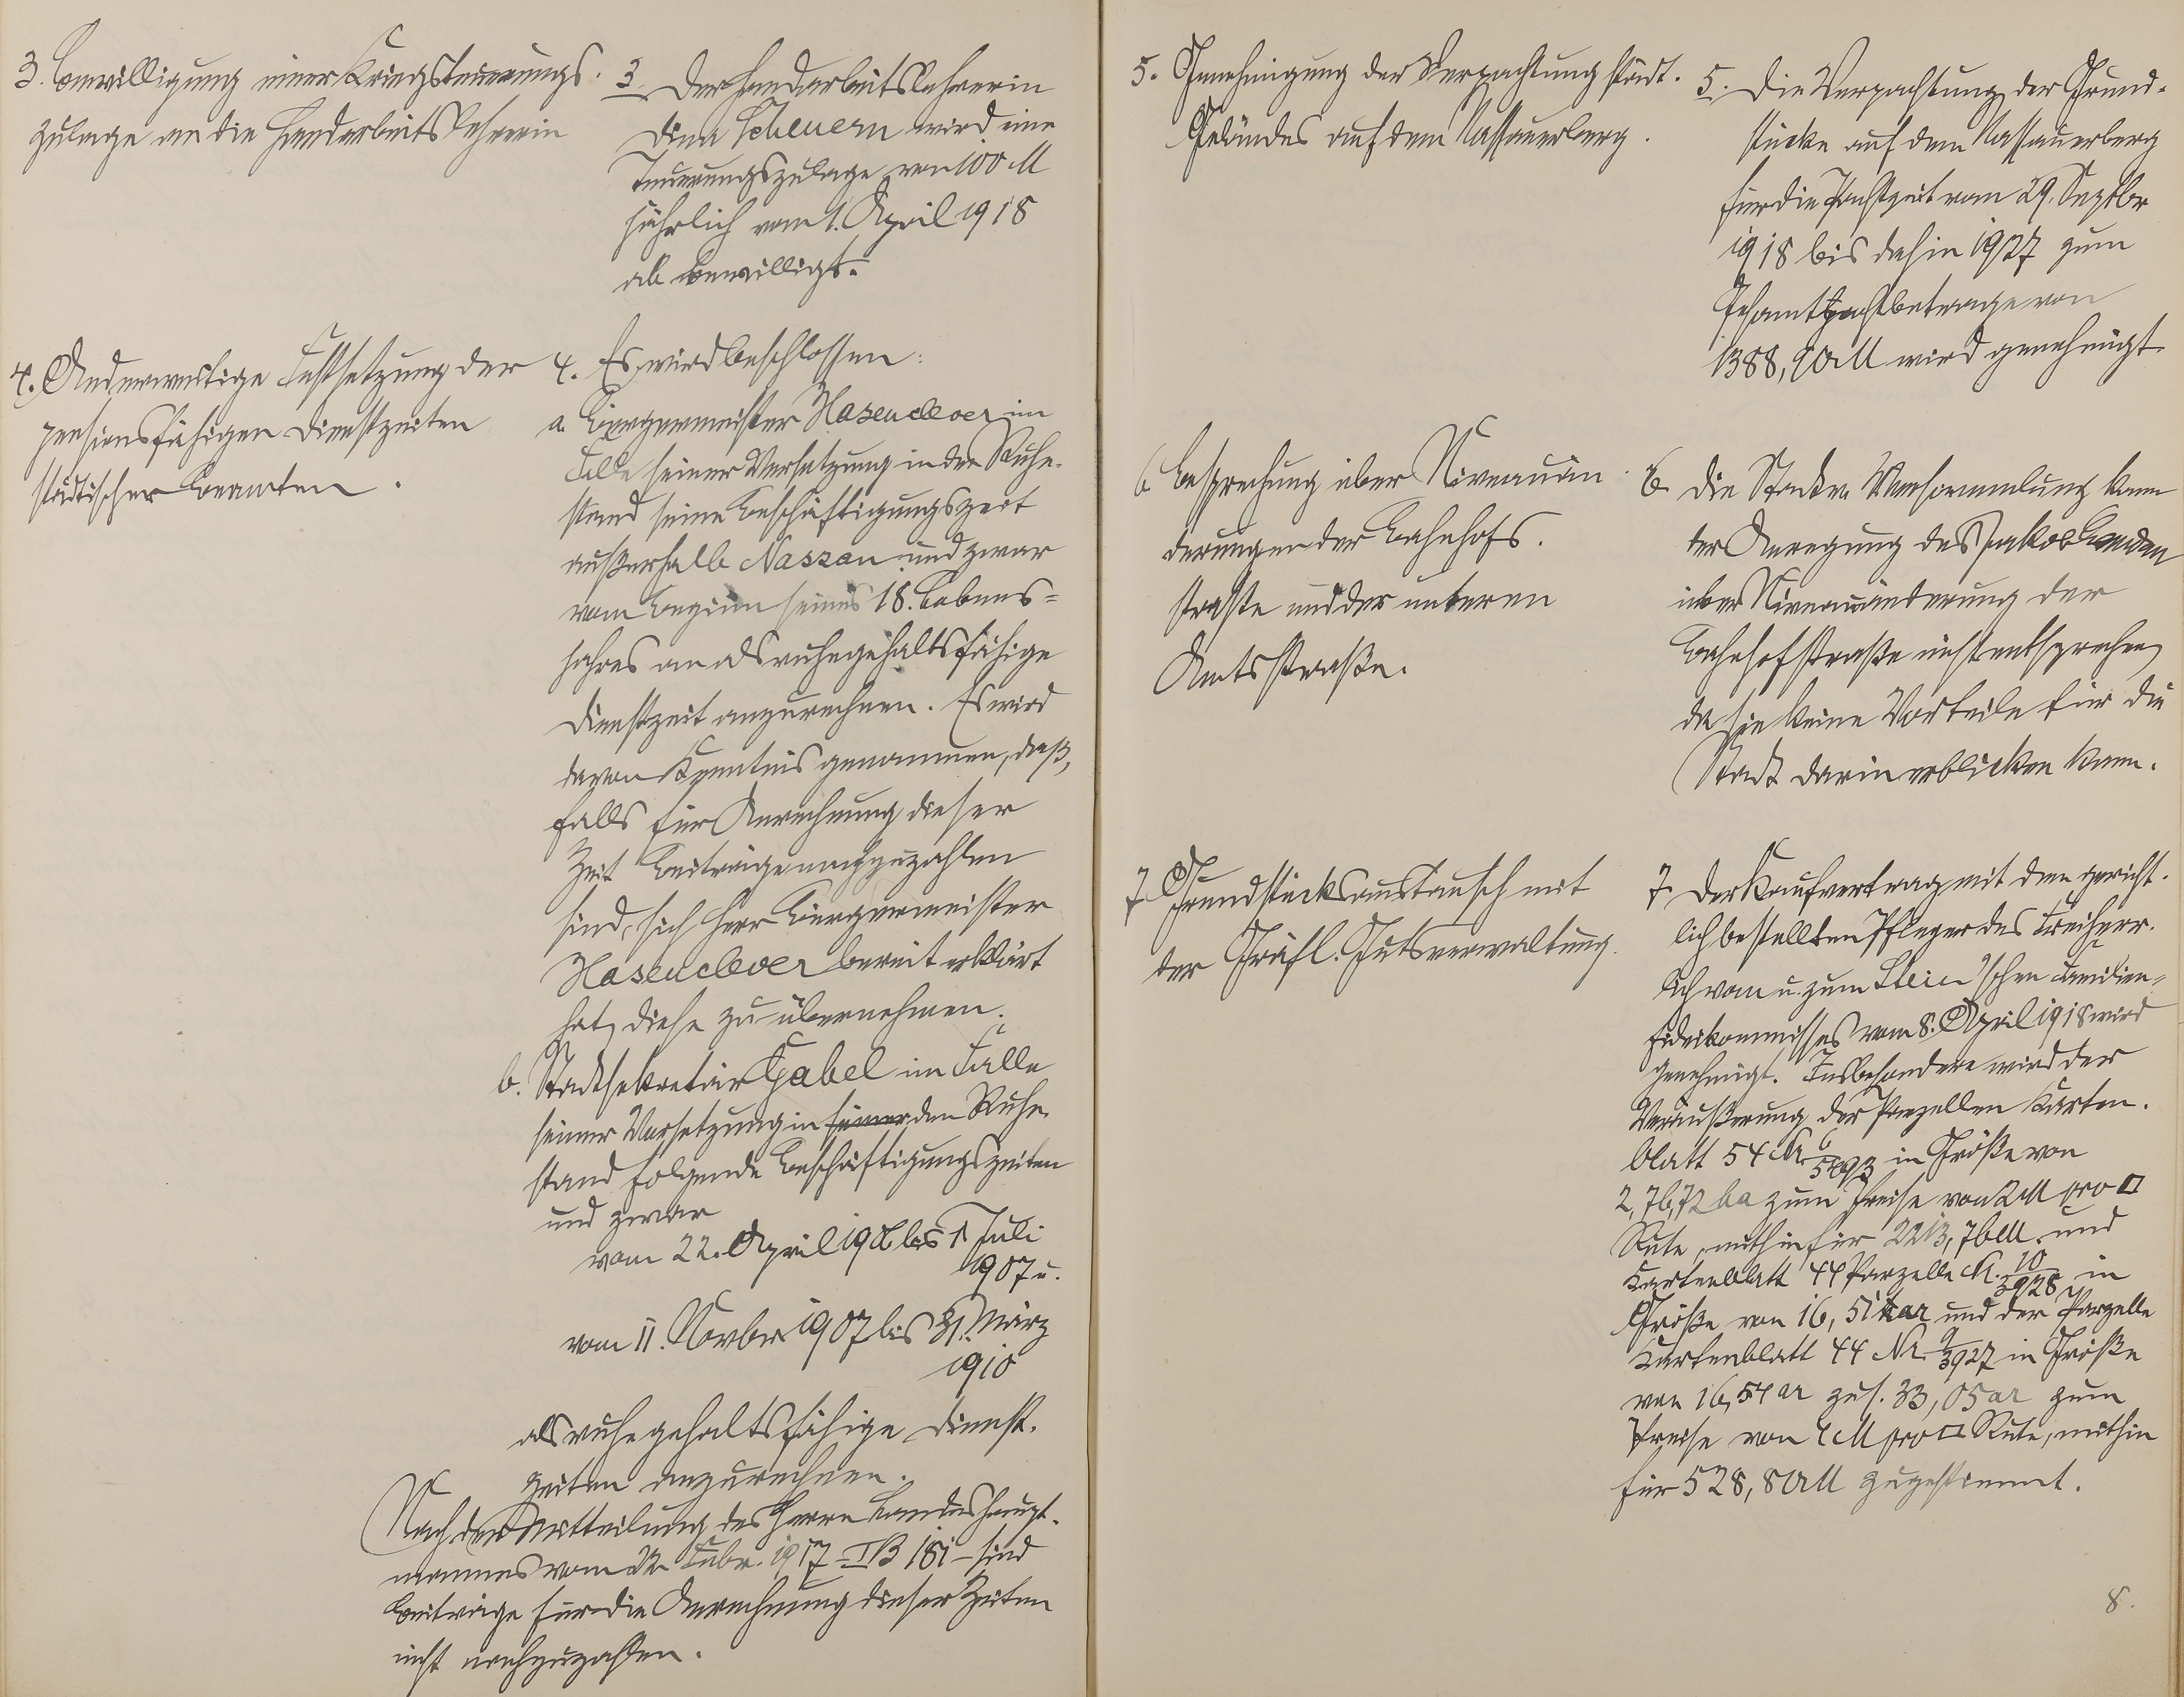 3. Bewilligung einer Kriegsteuerungs-
zulage an die Handarbeitslehrerin
3 Der Handarbeitslehrerin
Dina Scheuern wird eine
Teuerungszulage von 100 M
jährlich vom 1. April 1918
ab bewilligt.
4. Anderweitige Festsetzung der
pensionsfähigen Dienstzeiten
städtischer Beamten.
4. Es wird beschlossen:
a. Bürgermeister Hasenclever im
Falle seiner Versetzung in den Ruhe-
stand seine Beschäftigungszeit
außerhalb Nassau und zwar
vom Beginn seines 18. Lebens=
jahres an als ruhegehaltsfähige
Dienstzeit anzurechnen. Es wird
davon Kenntnis genommen, daß,
falls für Anrechnung dieser
Zeit Beiträge nachzuzahlen
sind, sich Herr Bürgermeister
Hasenclever bereit erklärt
hat, diese zu übernehmen.
b. Stadtsekretär Gabel im Falle
seiner Versetzung in seiner den Ruhe-
stand folgende Beschäftigungszeiten
und zwar
vom 22. April bis 1. Juli
1907 u.
vom 11. Novbr. 1907 bis 31. März
1910
als ruhegehaltsfähige Dienst-
zeiten anzurechnen.
Nach der Mitteilung des Herrn Landeshaupt-
mannes vom Febr. 1917 - I B 181 - sind
Beiträge für die Anrechnung dieser Zeiten
nicht nachzuzahlen.
5. Genehmigung der Verpachtung städt.
Geländes auf dem Nassauerberg.
5. Die Verpachtung der Grund-
stücke auf dem Nassauerberg
für die Pachtzeit vom 29. Septbr
1918 bis dahin 1927 zum
Gesamtpachtbetrage von
M wird genehmigt.
6. Besprechung über Niveauän-
derungen der Bahnhof-
straße und der unteren
Amtsstraße.
6. Die Stadtv. Versammlung kann
der Anregung des Jakob
über Niveauänderung der
Bahnhofstraße nicht entsprechen,
da sie keine Vorteile für die
Stadt darin erblicken kann.
7 Grundstücksaustausch mit
der Gräfl. Gutsverwaltung.
7. Der Kaufvertrag mit dem gericht-
lich bestellten Pfleger des Freiherr-
lich vom u. zum Stein'schen Familien-
fideikommisses vom 8. April 1918 wird
genehmigt. Insbesondere wird der
Veräußerung der Parzellen Karten-
blatt 54 Nr. 6/5493 in Größe von
2,76,72 ha zum Preise von 2 M pro □
Rute, mithin für 2213,76 M. und
Kartenblatt 44 Parzelle Nr. 10/3928 in
Größe von 16,51 ar und der Parzelle
Kartenblatt 44 Nr. 9/3927 in Größe
von 16,54 ar zus. 33,05 ar zum
Preise von 4 M pro □ Rute, mithin
für 528,80 M zugestimmt.
8.